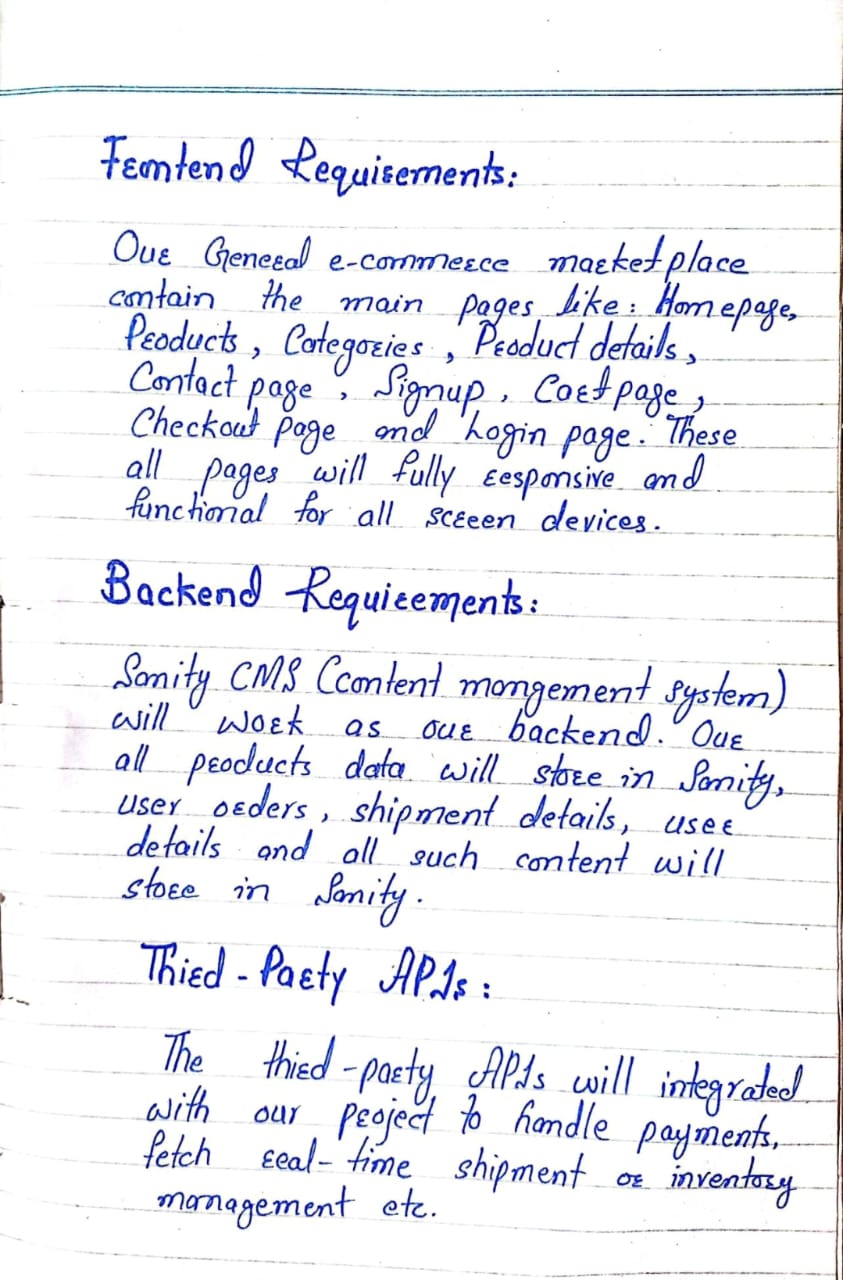 Frontend Requirements:
Our General e-commerce marketplace
contain the main pages like: Homepage,
Products, Categories, Product details,
Contact page, Signup, Cart page,
Checkout page and Login page. These
all pages will fully responsive and
functional for all screen devices.
Backend Requirements:
Sanity CMS (content mangement system)
will work as our backend. Our
all products data will store in Sanity,
user orders, shipment details, user
details and all such content will
store in Sanity.
Third-Party APIs:
The third-party APIs will integrated
with our project to handle payments,
fetch real-time shipment or inventory
management etc.